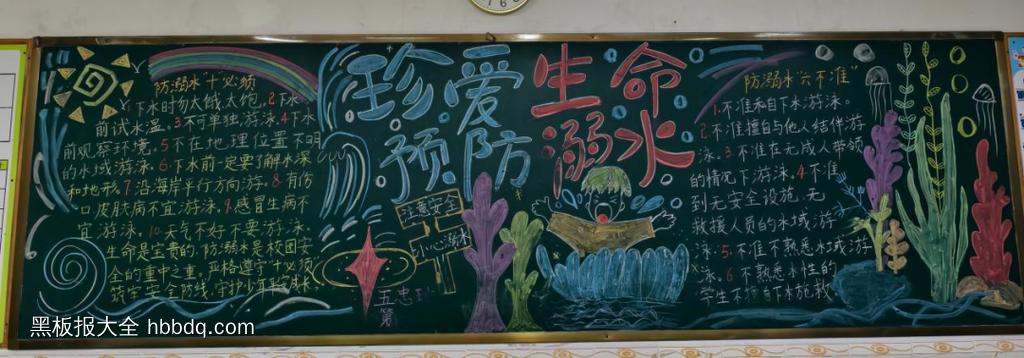 珍爱生命
预防溺水
防溺水“十”必须
1下水时勿太饿、太饱。2下水
前试水温。3不可单独游泳。4下水
前观察环境。5不在地理位置不明
的水域游泳。6下水前一定要了解水深
和地形。7沿海岸平行方向游。8有伤
口皮肤病不宜游泳。9感冒生病不
宜游泳。10天气不好不要游泳。
生命是宝贵的，防溺水是校园安
全的重中之重。严格遵守“十”必须
筑牢安全防线，守护
注意安全
小心溺水
防溺水“六不准”
1.不准私自下水游泳。
2不准擅自与他人结伴游
泳。3不准在无成人带领
的情况下游泳。4不准
到无安全设施、无
救援人员的水域游
泳。5不准不熟悉水域游
泳。6不熟悉水性的
学生不擅自下水施救
黑板报大全 hbbdq.com